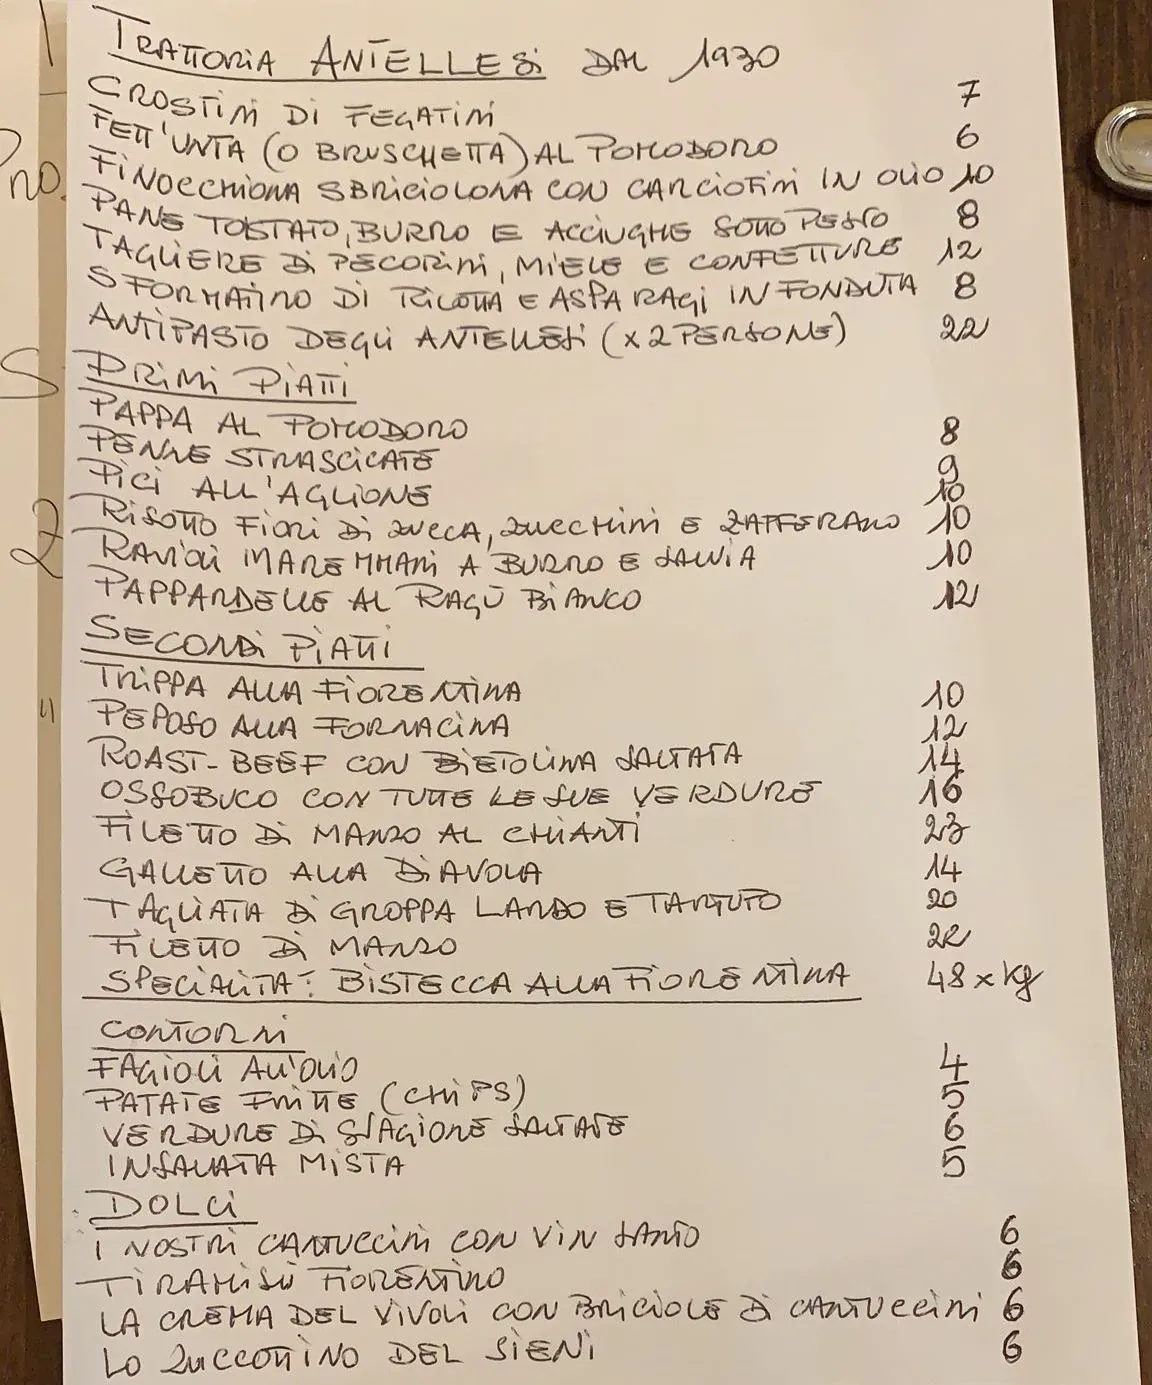 TRATTORIA ANTELLESI DAL 1930
CROSTINI DI FEGATINI 7
FETT'UNTA (O BRUSCHETTA) AL POMODORO 6
FINOCCHIONA SBRICIOLONA CON CARCIOFINI IN OLIO 10
PANE TOSTATO, BURRO E ACCIUGHE SOTTO PESTO 8
TAGLIERE DI PECORINI, MIELE E CONFETTURE 12
SFORMATINO DI RICOTTA E ASPARAGI IN FONDUTA 8
ANTIPASTO DEGLI ANTELLESI (X 2 PERSONE) 22
PRIMI PIATTI
PAPPA AL POMODORO 8
PENNE STRASCICATE 9
PICI ALL'AGLIONE 10
RISOTTO FIORI DI ZUCCA, ZUCCHINI E ZAFFERANO 10
RAVIOLI MAREMMANI A BURRO E SALVIA 10
PAPPARDELLE AL RAGÙ BIANCO 12
SECONDI PIATTI
TRIPPA ALLA FIORENTINA 10
PEPOSO ALLA FORNACINA 12
ROAST-BEEF CON BIETOLINA SALTATA 14
OSSOBUCO CON TUTTE LE SUE VERDURE 16
FILETTO DI MANZO AL CHIANTI 23
GALLETTO ALLA DIAVOLA 14
TAGLIATA DI GROPPA LARDO E TARTUFO 20
FILETTO DI MANZO 22
SPECIALITA': BISTECCA ALLA FIORENTINA 48 x Kg
CONTORNI
FAGIOLI ALL'OLIO 4
PATATE FRITTE (CHIPS) 5
VERDURE DI STAGIONE SALTATE 6
INSALATA MISTA 5
DOLCI
I NOSTRI CANTUCCINI CON VIN SANTO 6
TIRAMISÙ FIORENTINO 6
LA CREMA DEL VIVOLI CON BRICIOLE DI CANTUCCINI 6
LO ZUCCOTTINO DEL SIENI 6